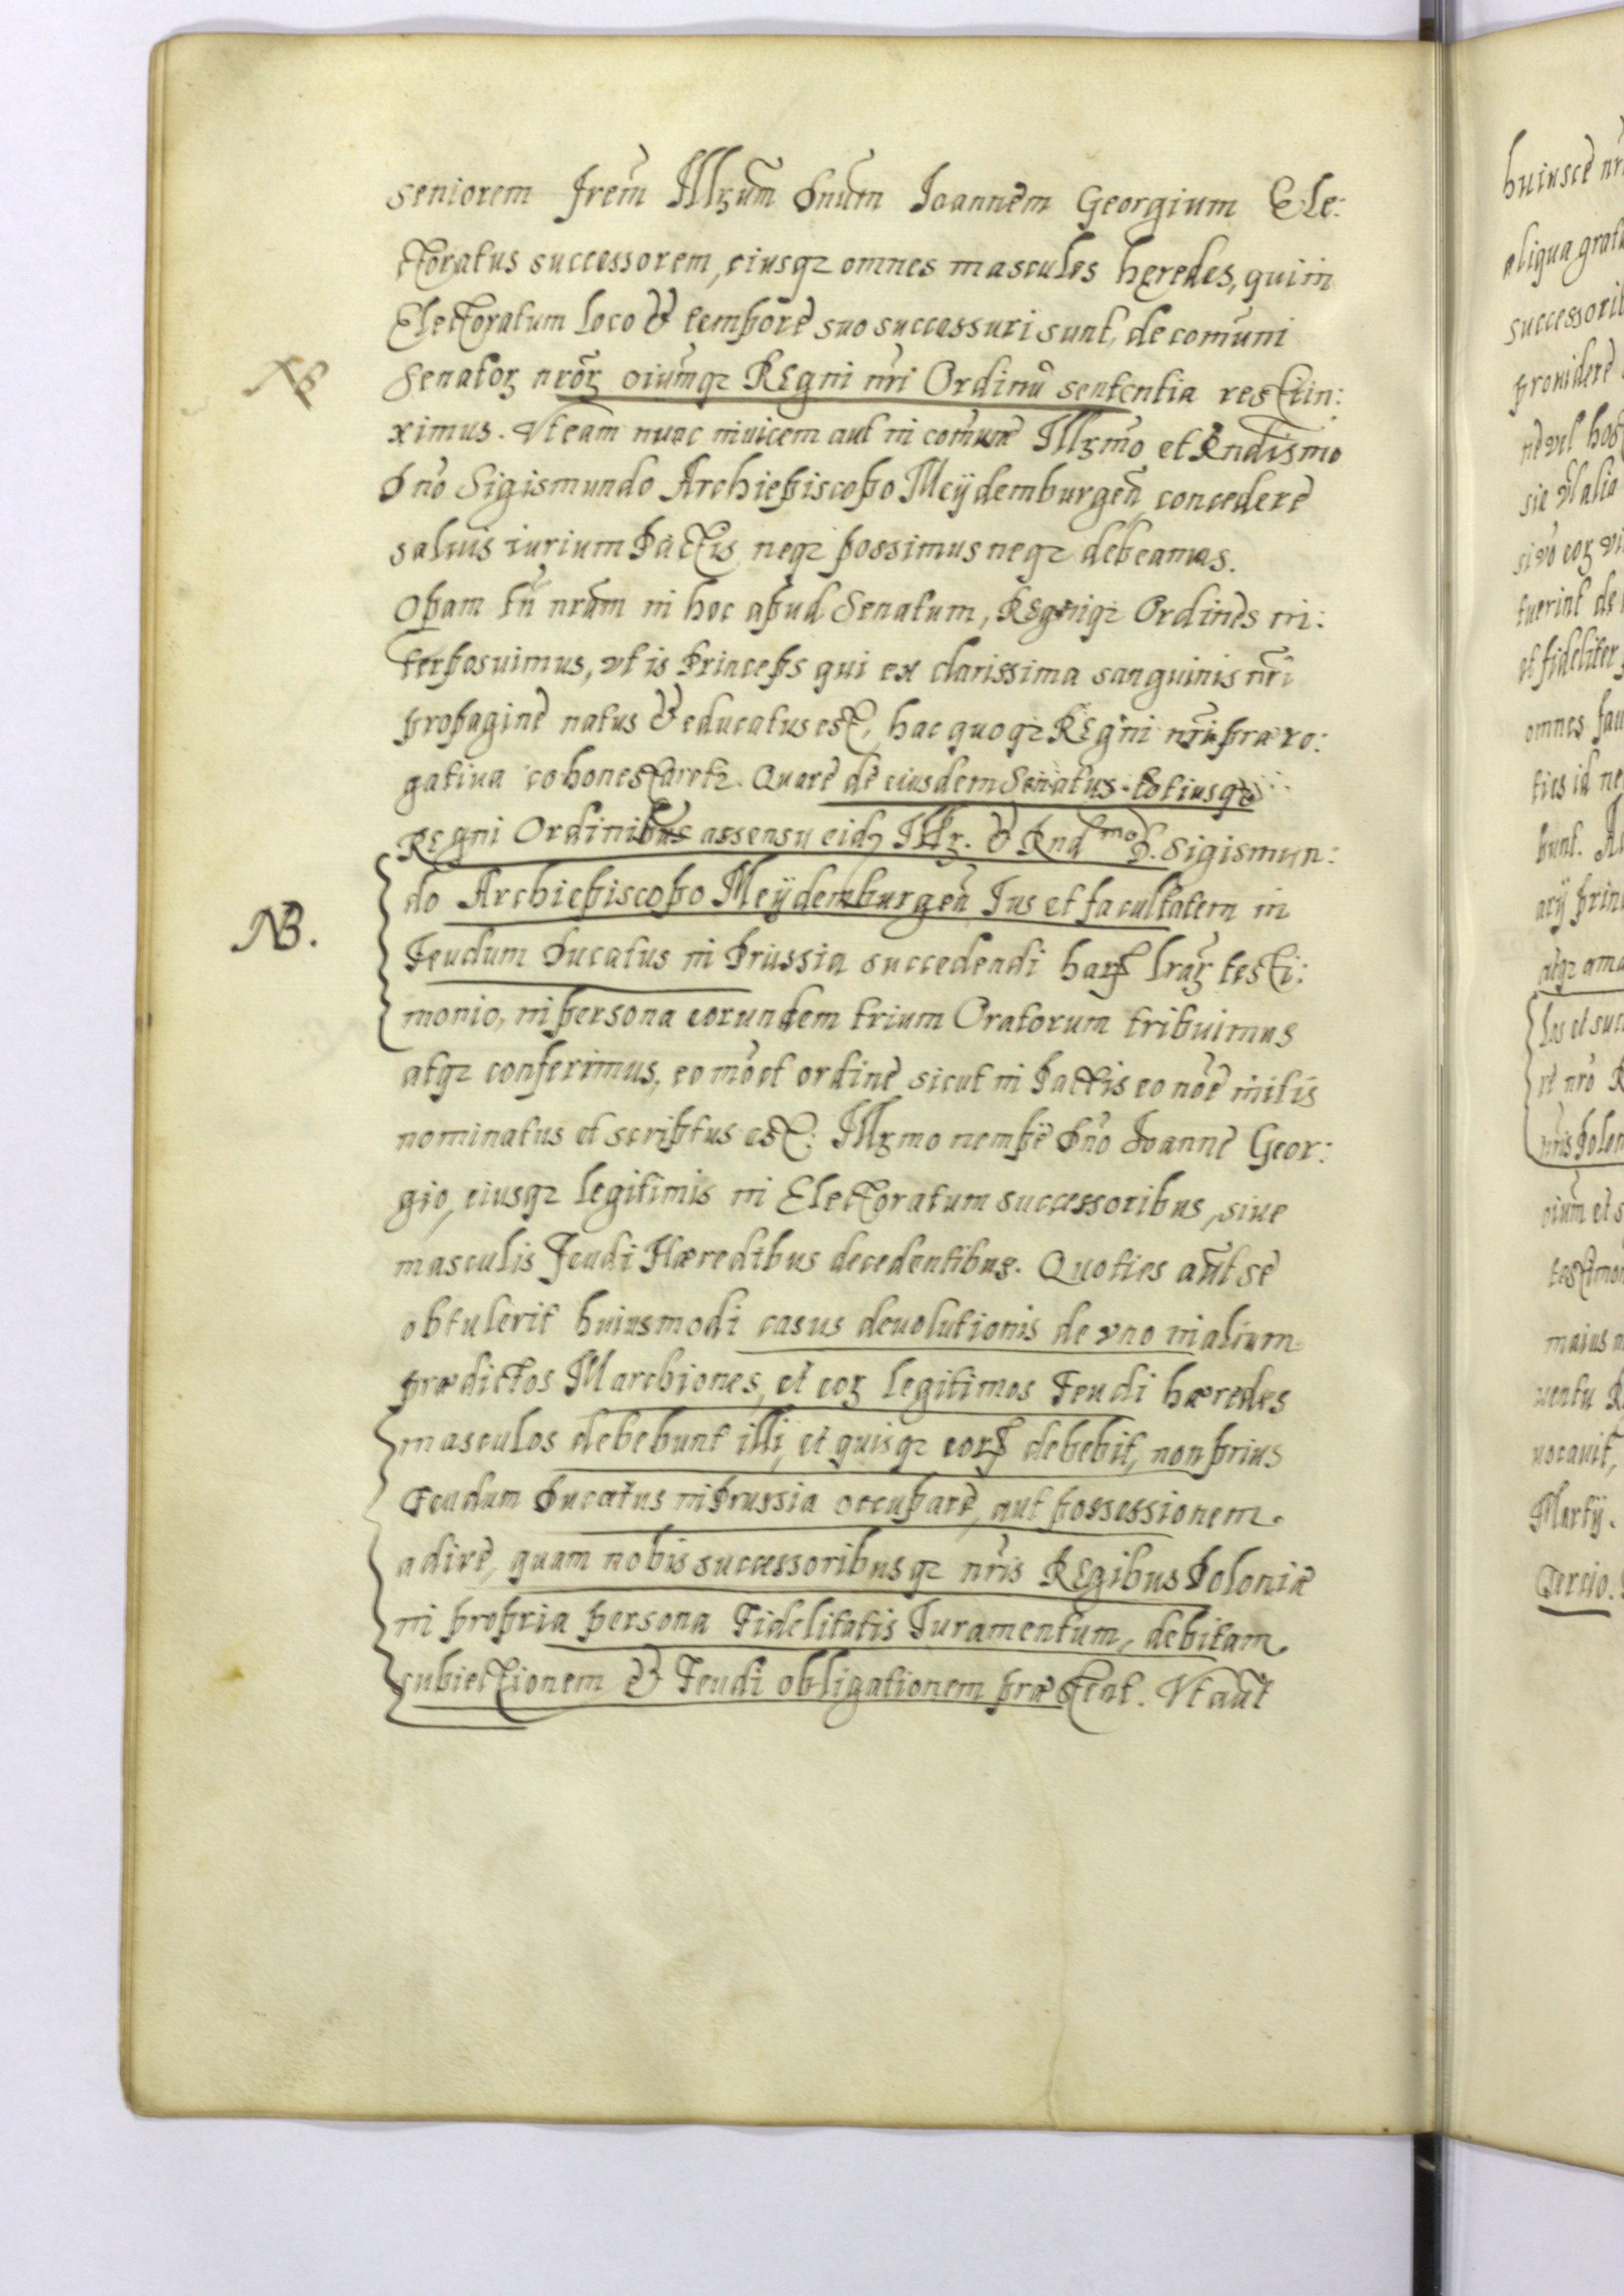 seniorem frem̃ Illr̃um Dnum̃ Joannem Georgium Ele:
ctoratus successorem, eiusq₃ omnes masculos hęredes, qui in
Electoratum loco & tempore suo successuri sunt, de com̃uni
NB
Senatoꝝ nr̃oꝝ oium̃q₃ REgni nr̃i Ordinũ sententia restrin:
ximus. Vt eam nunc inuicem aut in com̃une Illr̃mo et Rndismo
Dno͂ Sigismundo Archiepiscopo Meÿdemburgeñ concedere
saluis iurium Pactis neq₃ possimus neq₃ debeamus.
Opam tñ nrãm in hoc apud Senatum, REgniq₃ Ordines in:
terposuimus, vt is Princeps qui ex clarissima sanguinis nr̃i
propagine natus & educatus est, hac quoq₃ REgni nr̃i præro:
gatiua cohonestaretꝛ. Quare de eiusdem Senatus totiusq₃
REgni Ordinibus assensu eidꝫ Illꝛ. & Rnd^mo D. Sigismun:
do Archiepiscopo Meÿdemburgeñ Ius et facultatem in
NB.
Feudum Ducatus in Prussia succedendi harꝝ lr̃aꝝ testi:
monio, in persona eorundem trium Oratorum tribuimus
atq₃ conferimus, eo mõ et ordine sicut in Pactis eo nõe in illis
nominatus et scriptus est: Illꝛmo nempe Dño Joanne Geor:
gio, eiusq₃ legitimis in Electoratum successoribus, siue
masculis Feudi Hæredibus decedentibus. Quoties aũt se
obtulerit huiusmodi casus deuolutionis de vno in alium
prædictos Marchiones, et eoꝝ legitimos Feudi hæredes
masculos debebunt illi, et quisq₃ eorꝝ debebit, non prius
Feudum Ducatus in Prussia occupare, aut possessionem
adire, quam nobis successoribusq₃ nr̃is REgibus Poloniæ
in propria persona Fidelitatis Iuramentum, debitam
subiectionem & Feudi obligationem præstent. Vt aũt
huiusce
aliqua
providere
et fideliter
omnes
ties id
bunt.
atq₃
los et
oium̃ et
maius
uocauit,
Martÿ.
Tertio.